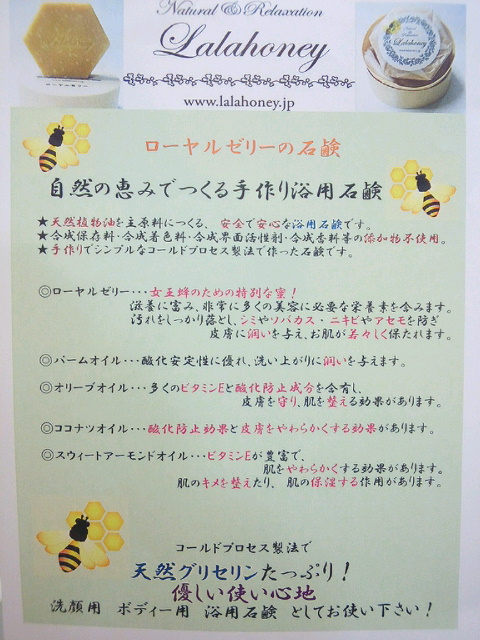 Natural & Relaxation
Lalahoney
www.lalahoney.jp
Lalahoney
ローヤルゼリーの石鹸
自然の恵みでつくる手作り浴用石鹸
★天然植物油を主原料につくる、安全で安心な浴用石鹸です。
★合成保存料・合成着色料・合成界面活性剤・合成香料等の添加物不使用。
★手作りでシンプルなコールドプロセス製法で作った石鹸です。
◎ローヤルゼリー・・・女王蜂のための特別な蜜！
滋養に富み、非常に多くの美容に必要な栄養素を含みます。
汚れをしっかり落とし、シミやソバカス・ニキビやアセモを防ぎ
皮膚に潤いを与え、お肌が若々しく保たれます。
◎パームオイル・・・酸化安定性に優れ、洗い上がりに潤いを与えます。
◎オリーブオイル・・・多くのビタミンEと酸化防止成分を含有し、
皮膚を守り、肌を整える効果があります。
◎ココナツオイル・・・酸化防止効果と皮膚をやわらかくする効果があります。
◎スウィートアーモンドオイル・・・ビタミンEが豊富で、
肌をやわらかくする効果があります。
肌のキメを整えたり、肌の保湿する作用があります。
コールドプロセス製法で
天然グリセリンたっぷり！
優しい使い心地
洗顔用 ボディー用 浴用石鹸 としてお使い下さい！